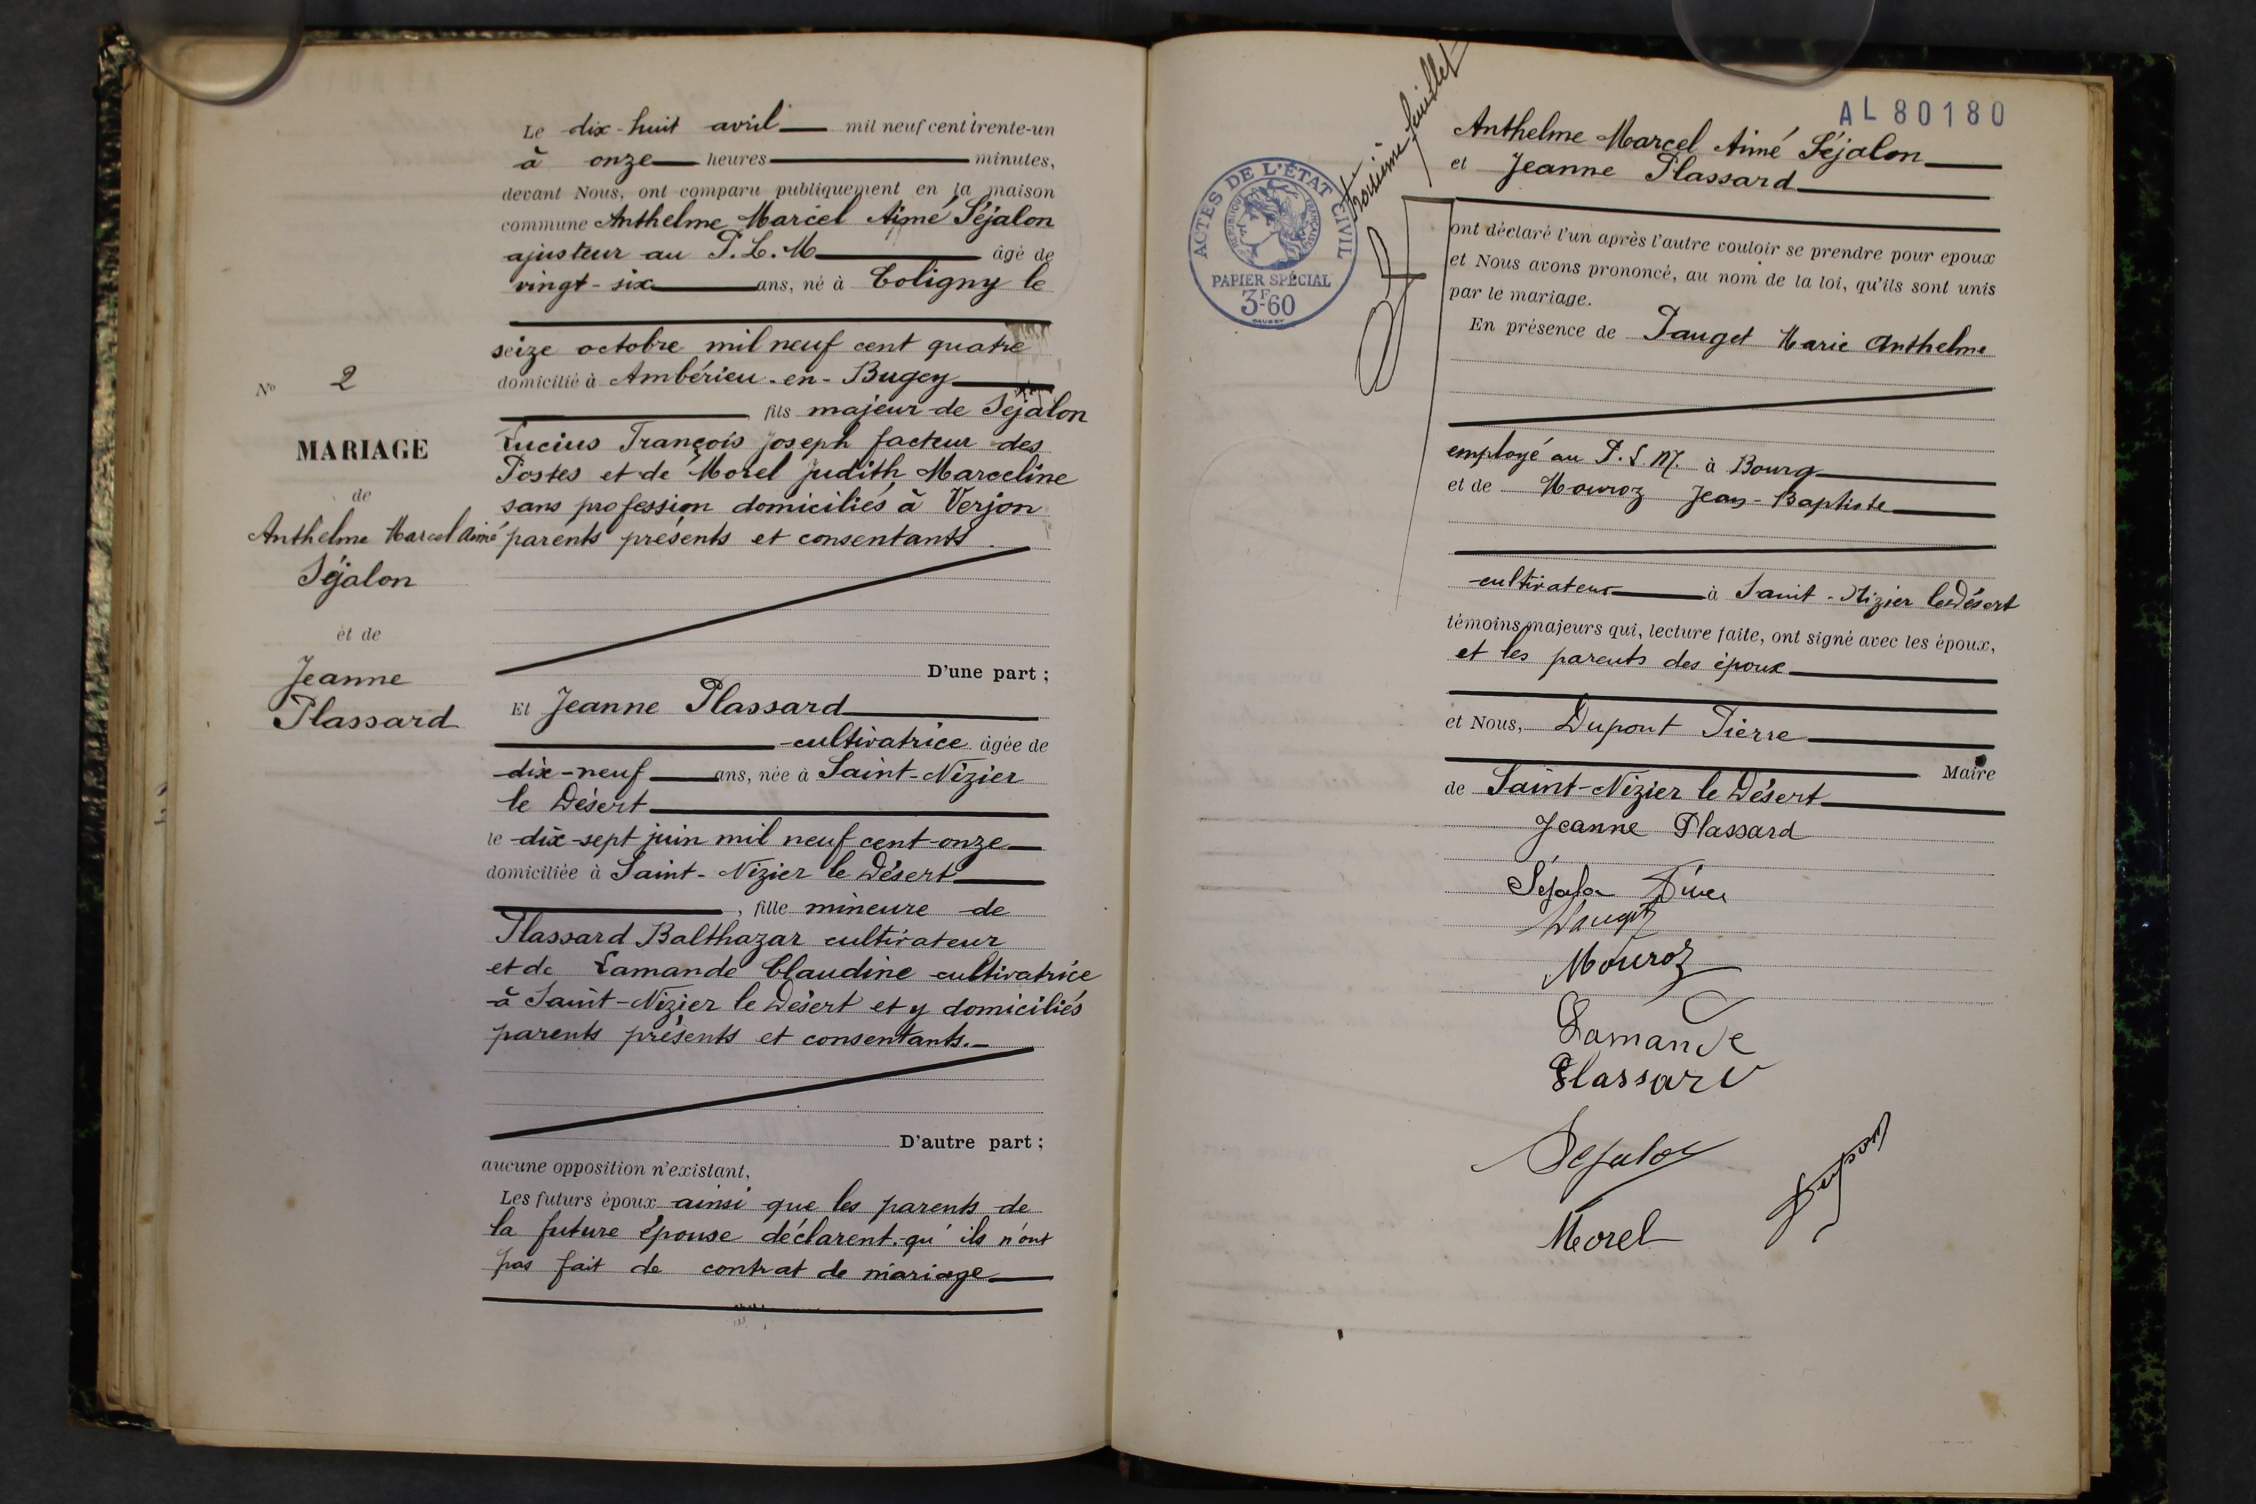 N° 2
MARIAGE
de
Anthelme Marcel Aimé
Séjalon
et de
Jeanne
Plassard
Le dix-huit avril mil neuf cent trente-un
à onze heures minutes,
devant Nous, ont comparu publiquement en la maison
commune Anthelme Marcel Aimé Séjalon
ajusteur au P.L.M âgé de
vingt-six ans, né à Coligny le
seize octobre mil neuf cent quatre
domicilié à Ambérieu-en-Bugey
, fils majeur de Séjalon
Lucius François Joseph facteur des
Postes et de Morel Judith Marceline
sans profession domiciliés à Verjon
parents présents et consentants.
D'une part ;
Et Jeanne Plassard
cultivatrice âgée de
dix-neuf ans, née à Saint-Nizier
le Désert
le dix-sept juin mil neuf cent onze
domiciliée à Saint-Nizier le Désert
, fille mineure de
Plassard Balthazar cultivateur
et de Lamande Claudine cultivatrice
à Saint-Nizier le Désert et y domiciliés
parents présents et consentants.
D'autre part ;
aucune opposition n'existant,
Les futurs époux ainsi que les parents de
la future épouse déclarent qu'ils n'ont
pas fait de contrat de mariage
troisième feuillet
AL 80180
ACTES DE L'ÉTAT CIVIL
RÉPUBLIQUE FRANÇAISE
PAPIER SPÉCIAL
3F60
Anthelme Marcel Aimé Séjalon
et Jeanne Plassard
ont déclaré l'un après l'autre vouloir se prendre pour epoux
et Nous avons prononcé, au nom de la loi, qu'ils sont unis
par le mariage.
En présence de Pauget Marie Anthelme
employé au P.L.M. à Bourg
et de Mouroz Jean-Baptiste
cultivateur à Saint-Nizier le Désert
témoins majeurs qui, lecture faite, ont signé avec les époux,
et les parents des époux
et Nous, Dupont Pierre
Maire
de Saint-Nizier le Désert
Jeanne Plassard
Séjalon Aimé
Pauget
Mouroz
Lamande
Plassard
Séjalon
Morel
Dupont